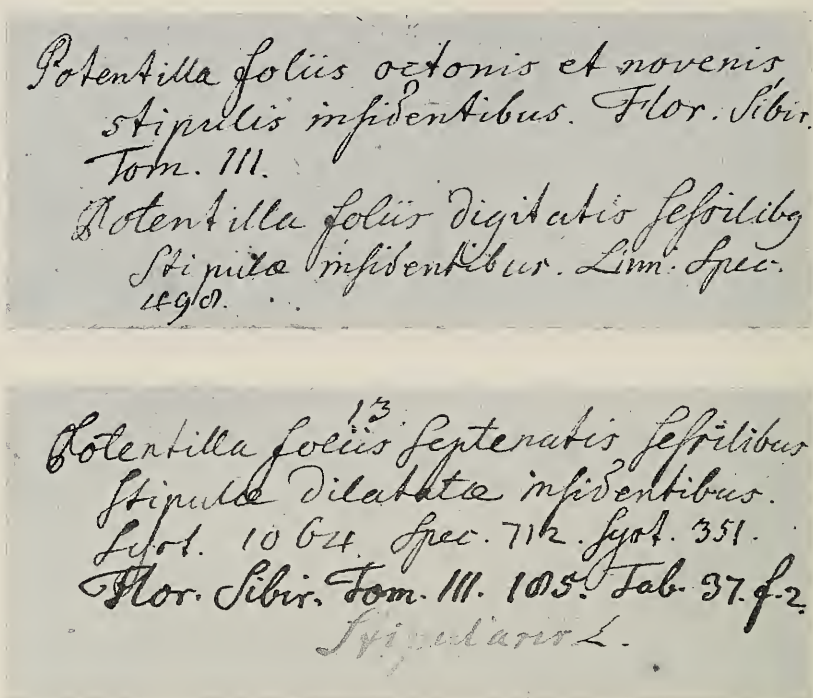 Potentilla foliis octonis et novenis,
stipulis insidentibus. Flor. Sibir.
Tom. III.
Potentilla foliis digitatis sessilibq
Stipulæ insidentibus. Linn: Spec.
498.
13
Potentilla foliis septenatis sessilibus
stipulæ dilatatæ insidentibus.
Syst. 1064. Spec. 712. Syst. 351.
Flor. Sibir. Tom. III. 185. Tab. 37. f. 2.
Stipularis L.